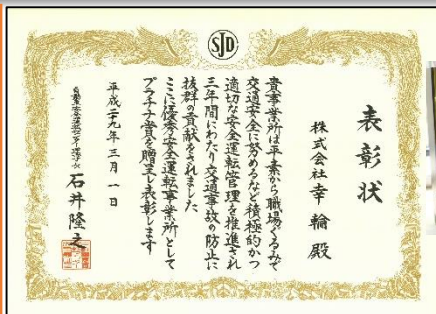 SJD
表彰状
株式会社幸輪殿
貴事業所は平素から職場ぐるみで
交通安全に努めるなど積極的かつ
適切な安全運転管理を推進され
三年間にわたり交通事故の防止に
抜群の貢献をされました
ここに優秀安全運転事業所として
プラチナ賞を贈呈し表彰します
平成二十九年三月一日
自動車安全運転センター理事長
石井隆之